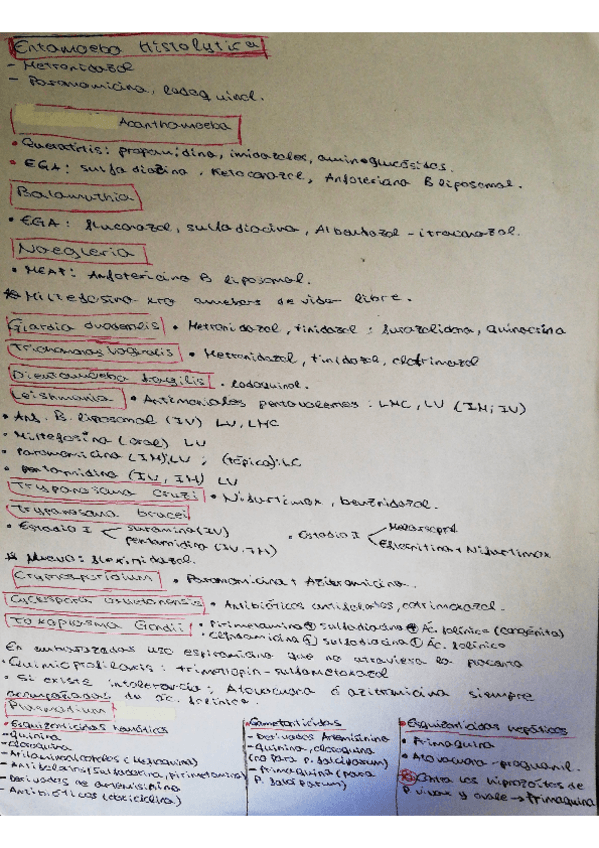 Entamoeba Histolytica
- Metronidazol
- Paromomicina, Iodoquinol.
Acanthamoeba
• Queratitis: propamidina, imidazoles, aminoglucósidos.
• EGA: sulfadiazina, Ketoconazol, Anfotericina B liposomal.
Balamuthia
• EGA: fluconazol, sulfadiacina, Albendazol - itraconazol.
Naegleria
• MEAP: Anfotericina B liposomal.
Miltefosina amebas de vida libre.
Giardia duodenalis • Metronidazol, tinidazol; furazolidona, quinacrina
Trichomonas vaginalis • Metronidazol, tinidazol, clotrimazol
Dientamoeba fragilis • Iodoquinol.
Leishmania • Antimoniales pentavalentes: LMC, LV (IM; IV)
• Anf. B. liposomal (IV) LV, LMC
• Miltefosina (oral) LV
• Paromomicina (IM):LV ; (tópica):LC
• pentamidina (IV, IM) LV
Trypanosoma cruzi • Nifurtimox, benznidazol.
Trypanosoma brucei
• Estadio I suramina (IV) • Estadio I Melarsoprol
pentamidina (IV. IM) Eflornitina + Nifurtimox
* Nuevo: fexinidazol.
Cryptosporidium • Paromomicina + Azitromicina.
Cyclospora cayetanensis • Antibióticos antifolatos, cotrimoxazol.
Toxoplasma Gondii • Pirimetamina + sulfadiacina + Ác. folínico (congénita)
• Clindamicina + sulfadiacina + Ác. folínico
En embarazadas uso espiramicina que no atraviesa la placenta
• Quimioprofilaxis: trimetropin - sulfametoxazol
• Si existe intolerancia: Atovacuona ó azitromicina siempre
acompañadas de ác. folínico.
Plasmodium
• Esquizonticidas hemáticos
- Quinina
- Cloroquina
- Arilaminoalcoholes (Mefloquina)
- Antifolatos (sulfadoxina, pirimetamina)
- Derivados de artemisinina
- Antibióticos (doxiciclina)
Gametocitocidas
- Derivados Artemisinina
- Quinina, cloroquina
(no para P. falciparum)
- Primaquina (para
P. falciparum)
• Esquizonticidas hepáticos
• Primaquina
• Atovacuona - proguanil.
Contra los hipnozoítos de
P vivax y ovale → Primaquina